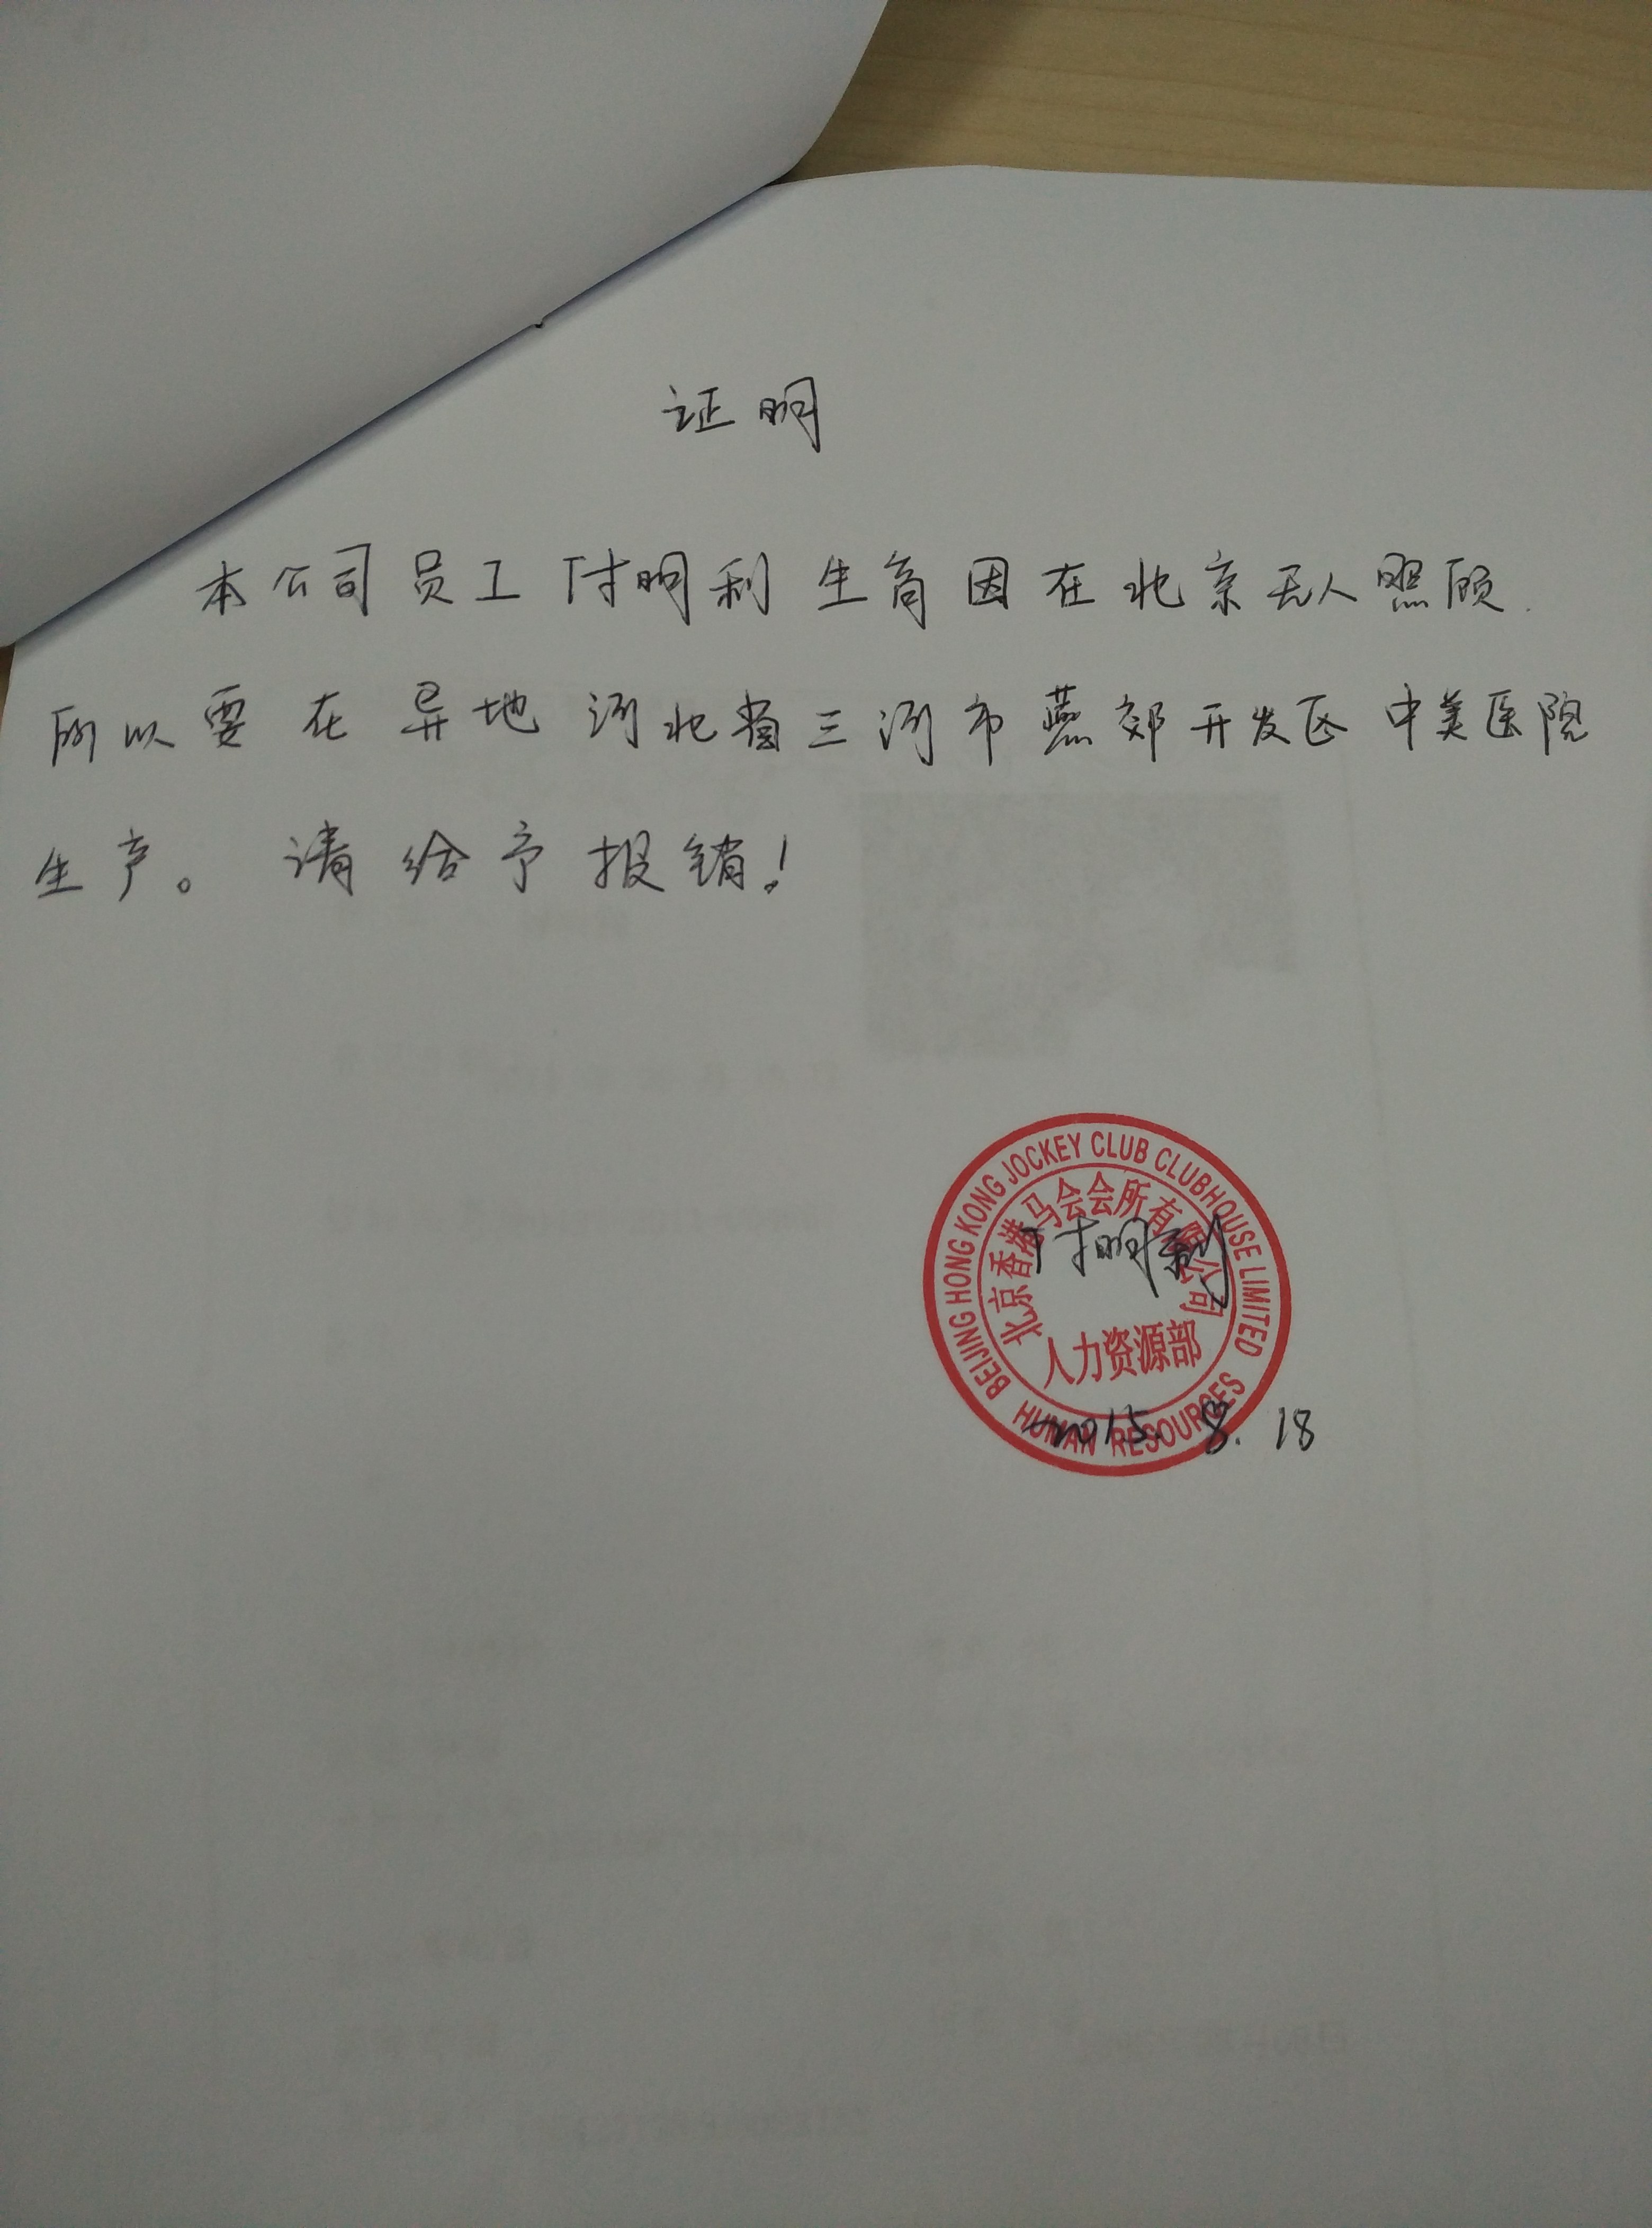 证明
本公司员工付明利生育因在北京无人照顾.
所以要在异地河北省三河市燕郊开发区中美医院
生产。请给予报销!
BEIJING HONG KONG JOCKEY CLUB CLUBHOUSE LIMITED
北京香港马会会所有限公司
付明利
人力资源部
HUMAN RESOURCES
2015. 8. 18